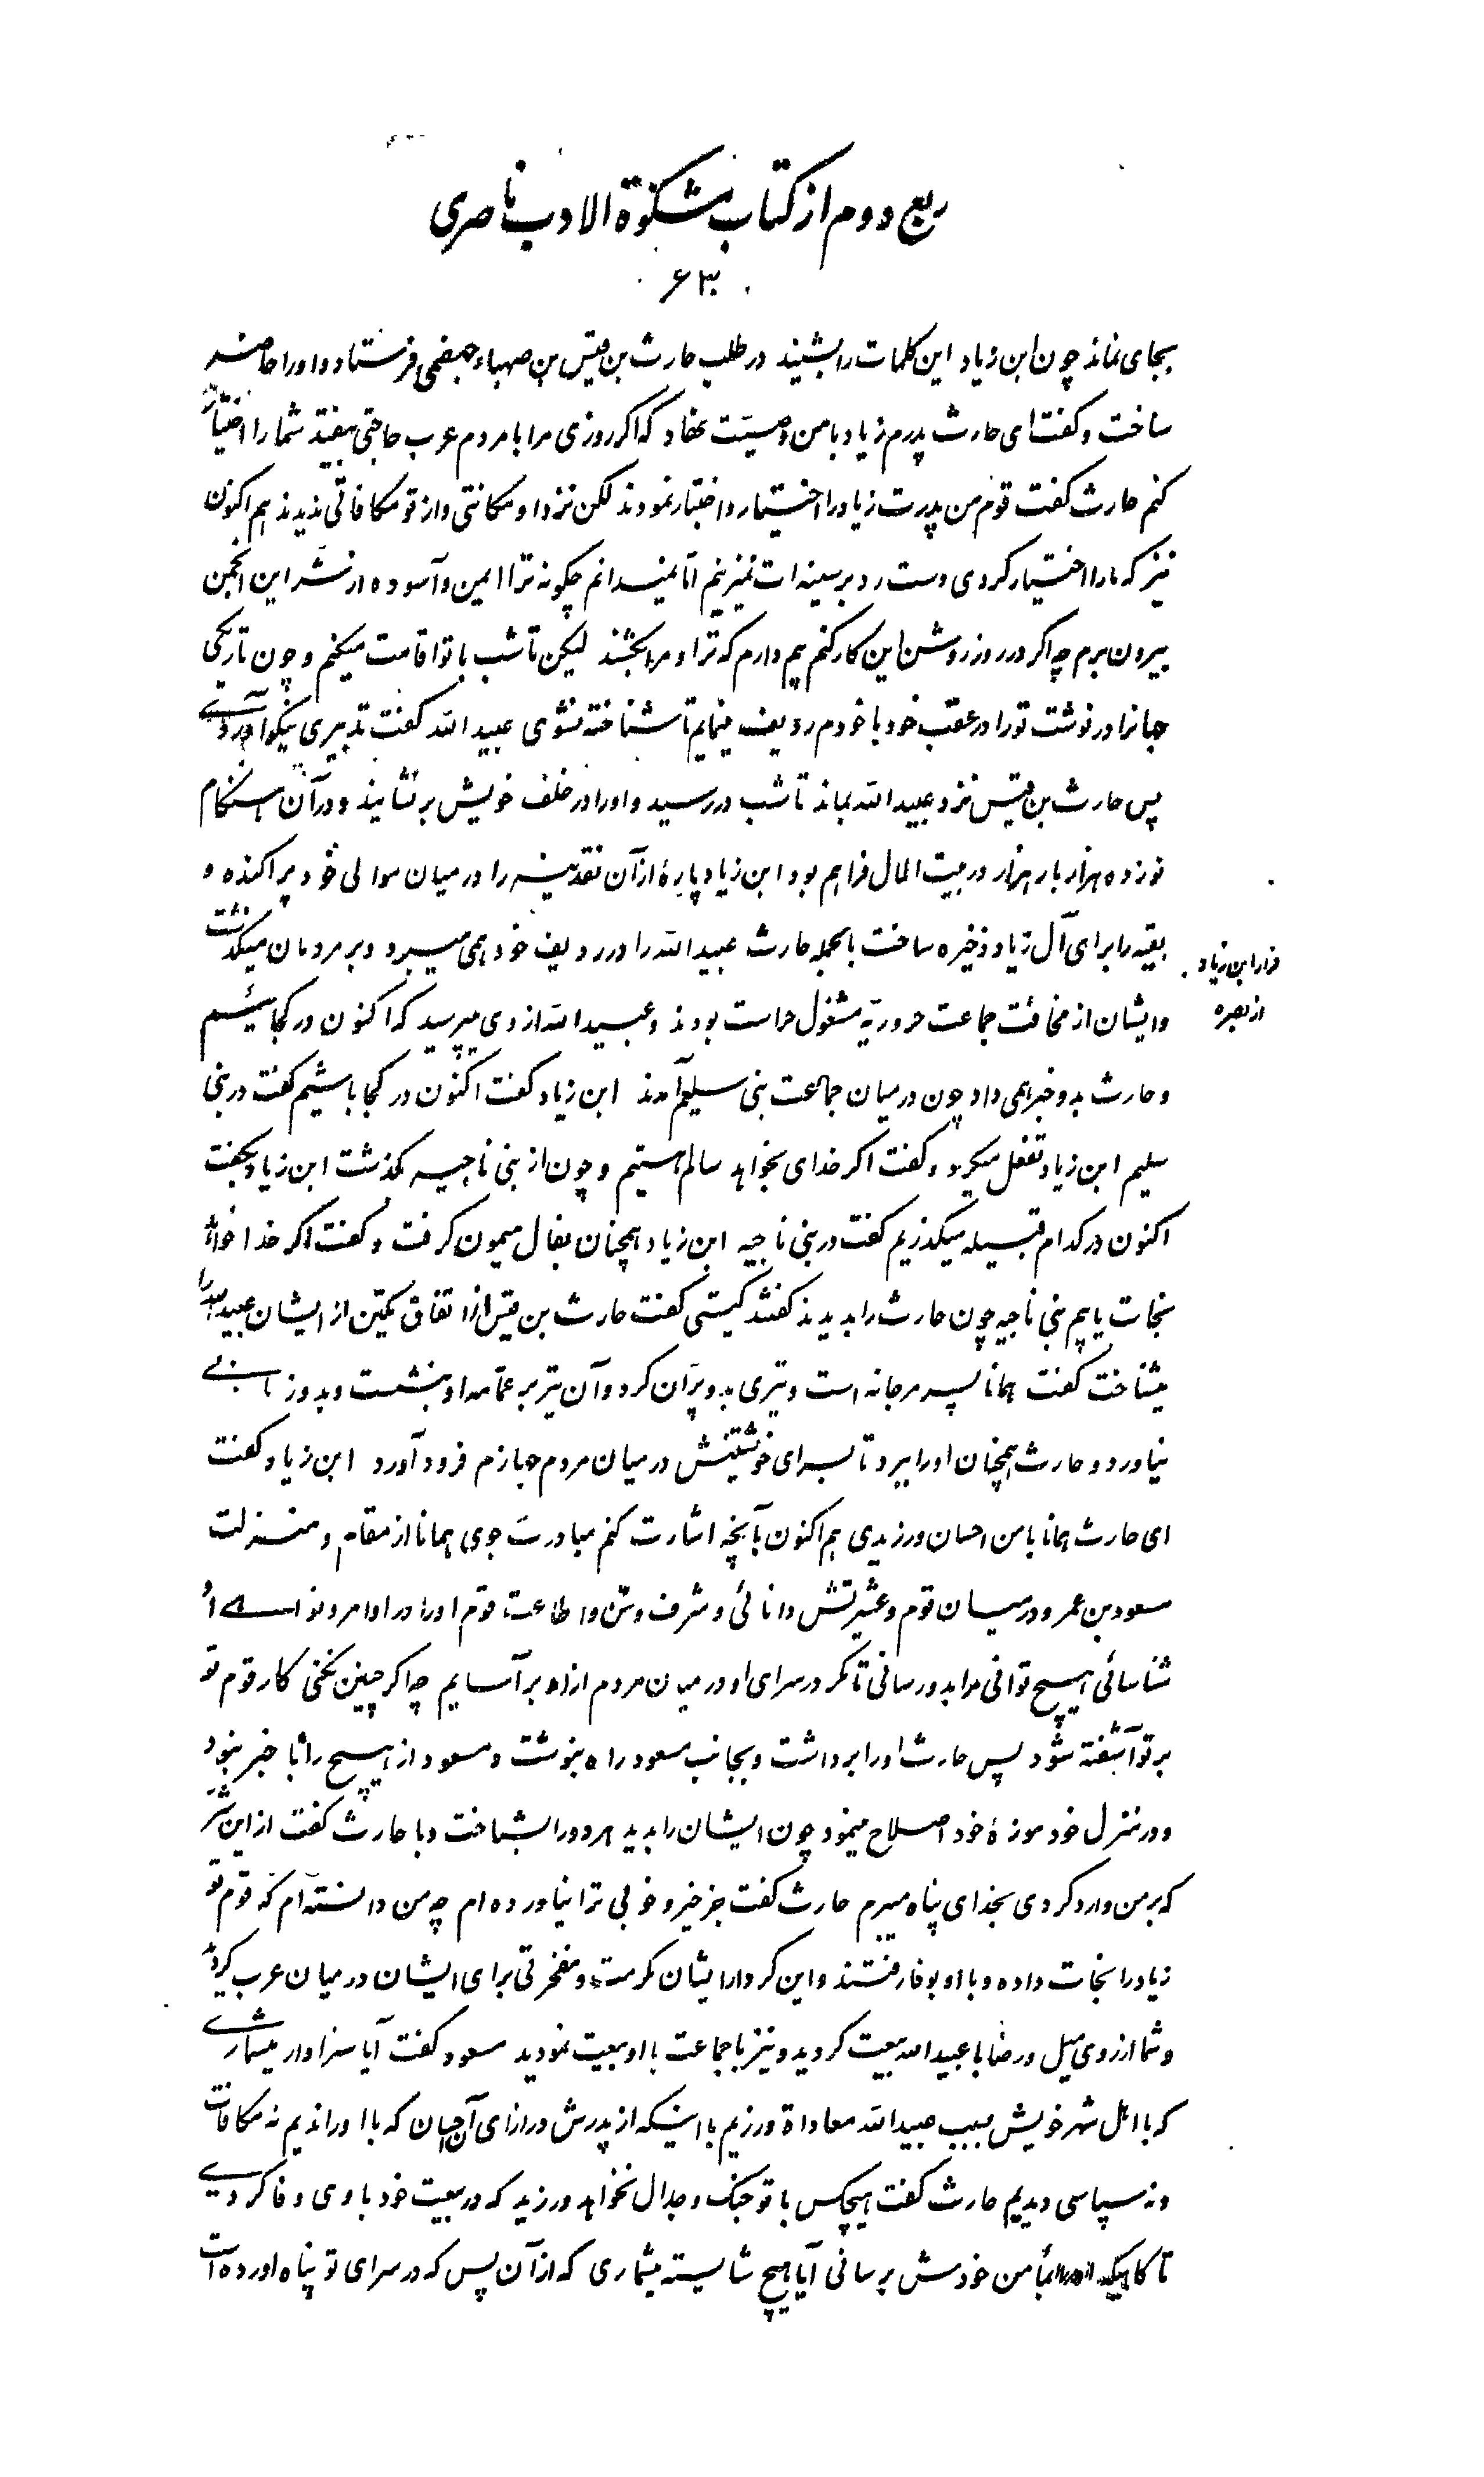 ربع دوم از کتاب مشکوة الادب ناصری
۶۳۰
بجای نماند چون ابن زیاد این کلمات را بشنید در طلب حارث بن قیس بن صهباء جهضمی فرستاد و او را حاضر
ساخت و گفت ای حارث پدرم زیاد با من وصیّت نهاد که اگر روزی مرا با مردم عرب حاجتی بیفتد شما را اختیار
کنم حارث گفت قوم من پدرت زیاد را اختیار و اختبار نمودند لکن نزد او مکانتی و از تو مکافاتی ندیدند هم اکنون
نیز که ما را اختیار کردی دست رد بر سینه ات نمیزنیم امّا نمیدانم چگونه ترا ایمن و آسوده از شر این انجمن
بیرون برم چه اگر در روز روشن این کار کنم بیم دارم که ترا و مرا بکشند لیکن تا شب با تو اقامت میکنم و چون تاریکی
جهانرا در نوشت تو را در عقب خود با خودم ردیف مینمایم تا شناخته نشوی عبید الله گفت تدبیری نیکو آوردی
پس حارث بن قیس نزد عبید الله بماند تا شب در رسید و او را در خلف خویش بر نشانید و در آن هنگام
نوزده هزار بار هزار در بیت المال فراهم بود ابن زیاد پارهٔ از آن نقدینه را در میان موالی خود پراکنده و
بقیه را برای آل زیاد ذخیره ساخت بالجمله حارث عبید الله را در ردیف خود همی میبرد و بر مردمان میگذشت
فرار ابن زیاد
از بصره
و ایشان از مخافت جماعت حروریّه مشغول حراست بودند و عبید الله از وی میپرسید که اکنون در کجائیم
و حارث بدو خبر همی داد چون در میان جماعت بنی سلیم آمدند ابن زیاد گفت اکنون در کجا باشیم گفت در بنی
سلیم ابن زیاد تفعل میکرد و گفت اگر خدای بخواهد سالم هستیم و چون از بنی ناجیه بگذشت ابن زیاد بگفت
اکنون در کدام قبیله میگذریم گفت در بنی ناجیه ابن زیاد همچنان بفال میمون گرفت و گفت اگر خدا خواهد
نجات یابیم بنی ناجیه چون حارث را بدیدند گفتند کیستی گفت حارث بن قیس از اتفاق یکتن از ایشان عبید الله را
میشناخت گفت همانا پسر مرجانه است و تیری بدو پرّان کرد و آن تیر بر عمّامه او بنشست و بدو زیانی
نیاورد و حارث همچنان او را ببرد تا بسرای خویشتنش در میان مردم جهازم فرود آورد ابن زیاد گفت
ای حارث همانا با من احسان ورزیدی هم اکنون بآنچه اشارت کنم مبادرت جوی همانا از مقام و منزلت
مسعود بن عمرو در میان قوم و عشیرتش و دانائی و شرف و سنّ و اطاعت قوم او را در اوامر و نواهی او
شناسائی هیچ توانی مرا بدو رسانی تا مگر در سرای او در میان مردم ازد بر آسایم چه اگر چنین نکنی کار قوم تو
بر تو آشفته شود پس حارث او را برداشت و بجانب مسعود راه بنوشت و مسعود از هیچ راه با خبر نبود
و در منزل خود موزهٔ خود اصلاح مینمود چون ایشان را بدید هر دو را بشناخت و با حارث گفت از این شر
که بر من وارد کردی بخدای پناه میبرم حارث گفت جز خیر و خوبی ترا نیاورده ام چه من دانسته ام که قوم تو
زیاد را نجات داده و با او بوفا رفتند و این کردار ایشان مکرمت و مفخرتی برای ایشان در میان عرب گردید
و شما از روی میل و رضا با عبید الله بیعت کردید و نیز با جماعت با او بیعت نمودید مسعود گفت آیا سزاوار میشماری
که با اهل شهر خویش بسبب عبید الله معاداة ورزیم با اینکه از پدرش در ازای آن احسان که با او راندیم نه مکافات
و نه سپاسی دیدیم حارث گفت هیچکس با تو جنگ و جدال نخواهد ورزید که در بیعت خود با وی وفا کردی
تا گاهیکه او را بمأمن خودش برسانی آیا هیچ شایسته میشماری که از آن پس که در سرای تو پناه آورده است